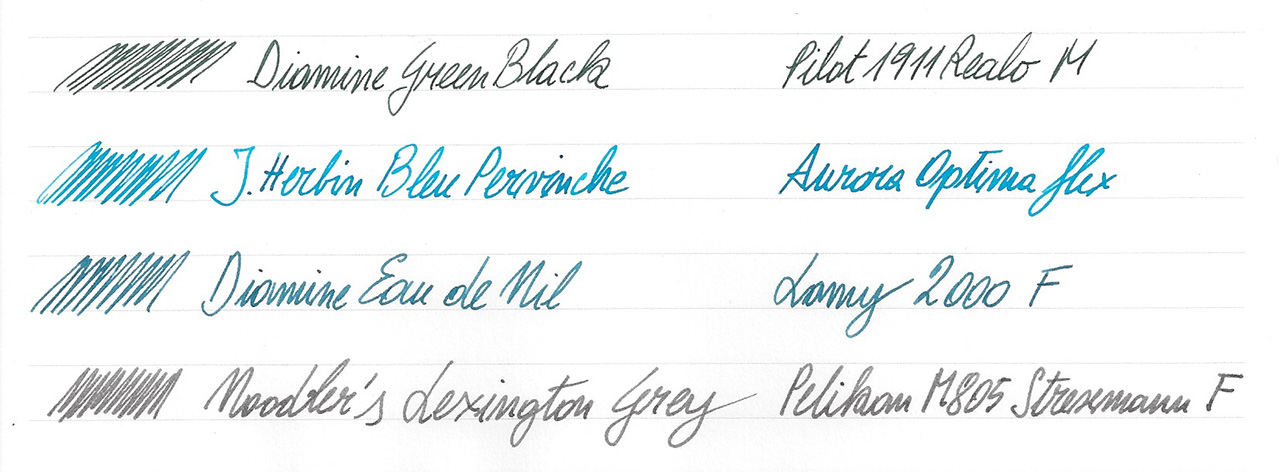 Diamine Green Black Pilot 1911 Realo M
J. Herbin Bleu Pervinche Aurora Optima flex
Diamine Eau de Nil Lamy 2000 F
Noodler's Lexington Grey Pelikan M805 Stresemann F